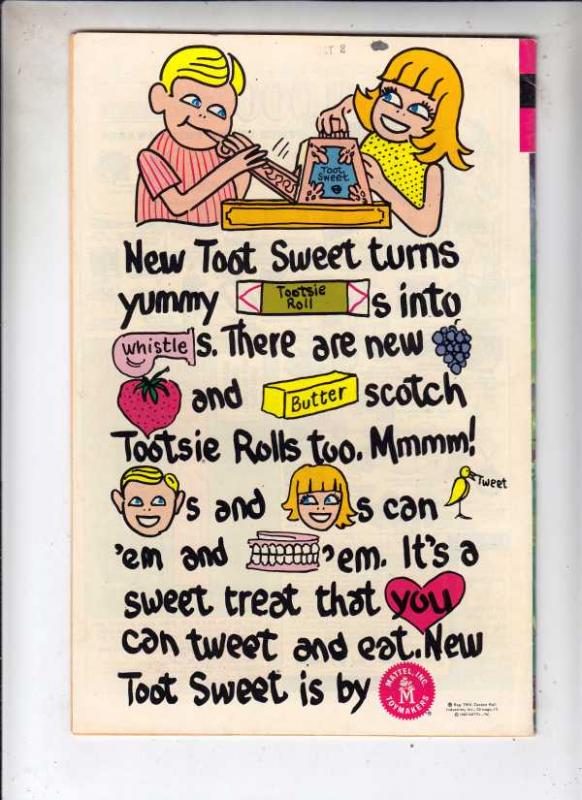 Toot
Sweet
New Toot Sweet turns
yummy Tootsie Roll s into
whistle s. There are new
and Butter scotch
Tootsie Rolls too. Mmmm!
s and s can Tweet
'em and 'em. It's a
sweet treat that you
can tweet and eat. New
Toot Sweet is by MATTEL, INC. TOYMAKERS M ®